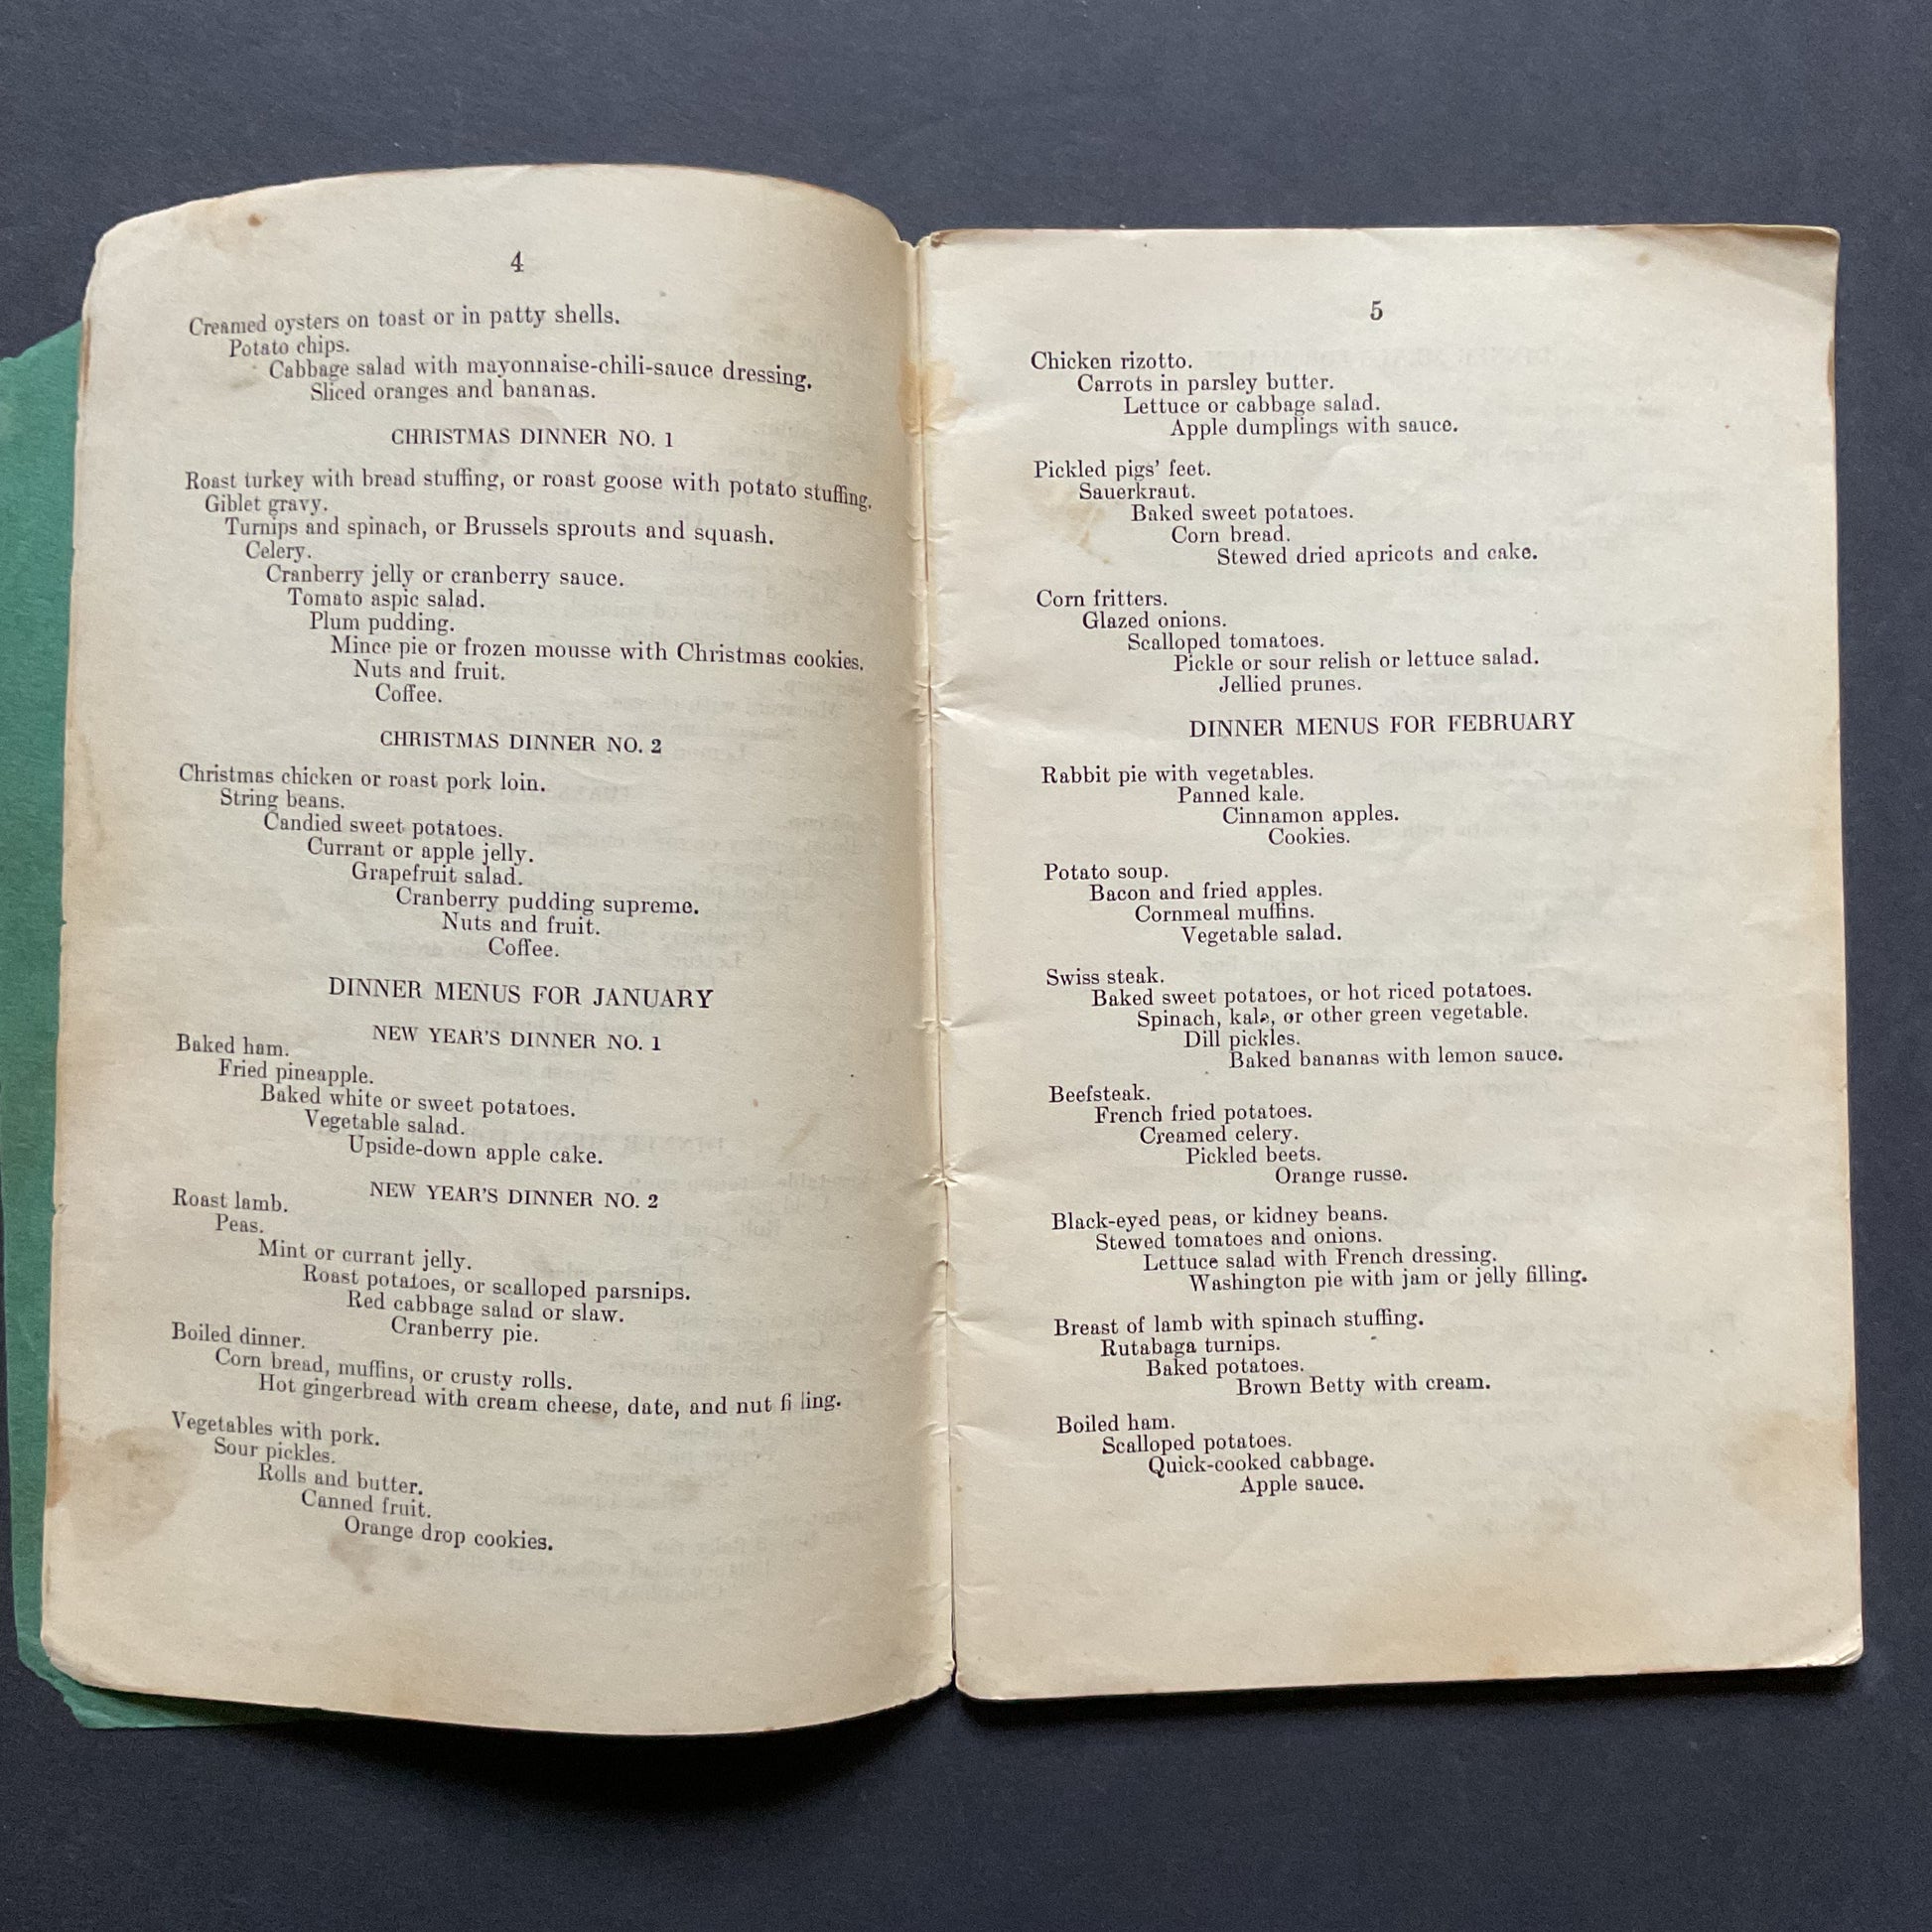 4
Creamed oysters on toast or in patty shells.
Potato chips.
Cabbage salad with mayonnaise-chili-sauce dressing.
Sliced oranges and bananas.
CHRISTMAS DINNER NO. 1
Roast turkey with bread stuffing, or roast goose with potato stuffing.
Giblet gravy.
Turnips and spinach, or Brussels sprouts and squash.
Celery.
Cranberry jelly or cranberry sauce.
Tomato aspic salad.
Plum pudding.
Mince pie or frozen mousse with Christmas cookies.
Nuts and fruit.
Coffee.
CHRISTMAS DINNER NO. 2
Christmas chicken or roast pork loin.
String beans.
Candied sweet potatoes.
Currant or apple jelly.
Grapefruit salad.
Cranberry pudding supreme.
Nuts and fruit.
Coffee.
DINNER MENUS FOR JANUARY
NEW YEAR'S DINNER NO. 1
Baked ham.
Fried pineapple.
Baked white or sweet potatoes.
Vegetable salad.
Upside-down apple cake.
NEW YEAR'S DINNER NO. 2
Roast lamb.
Peas.
Mint or currant jelly.
Roast potatoes, or scalloped parsnips.
Red cabbage salad or slaw.
Cranberry pie.
Boiled dinner.
Corn bread, muffins, or crusty rolls.
Hot gingerbread with cream cheese, date, and nut filling.
Vegetables with pork.
Sour pickles.
Rolls and butter.
Canned fruit.
Orange drop cookies.
5
Chicken rizotto.
Carrots in parsley butter.
Lettuce or cabbage salad.
Apple dumplings with sauce.
Pickled pigs' feet.
Sauerkraut.
Baked sweet potatoes.
Corn bread.
Stewed dried apricots and cake.
Corn fritters.
Glazed onions.
Scalloped tomatoes.
Pickle or sour relish or lettuce salad.
Jellied prunes.
DINNER MENUS FOR FEBRUARY
Rabbit pie with vegetables.
Panned kale.
Cinnamon apples.
Cookies.
Potato soup.
Bacon and fried apples.
Cornmeal muffins.
Vegetable salad.
Swiss steak.
Baked sweet potatoes, or hot riced potatoes.
Spinach, kale, or other green vegetable.
Dill pickles.
Baked bananas with lemon sauce.
Beefsteak.
French fried potatoes.
Creamed celery.
Pickled beets.
Orange russe.
Black-eyed peas, or kidney beans.
Stewed tomatoes and onions.
Lettuce salad with French dressing.
Washington pie with jam or jelly filling.
Breast of lamb with spinach stuffing.
Rutabaga turnips.
Baked potatoes.
Brown Betty with cream.
Boiled ham.
Scalloped potatoes.
Quick-cooked cabbage.
Apple sauce.